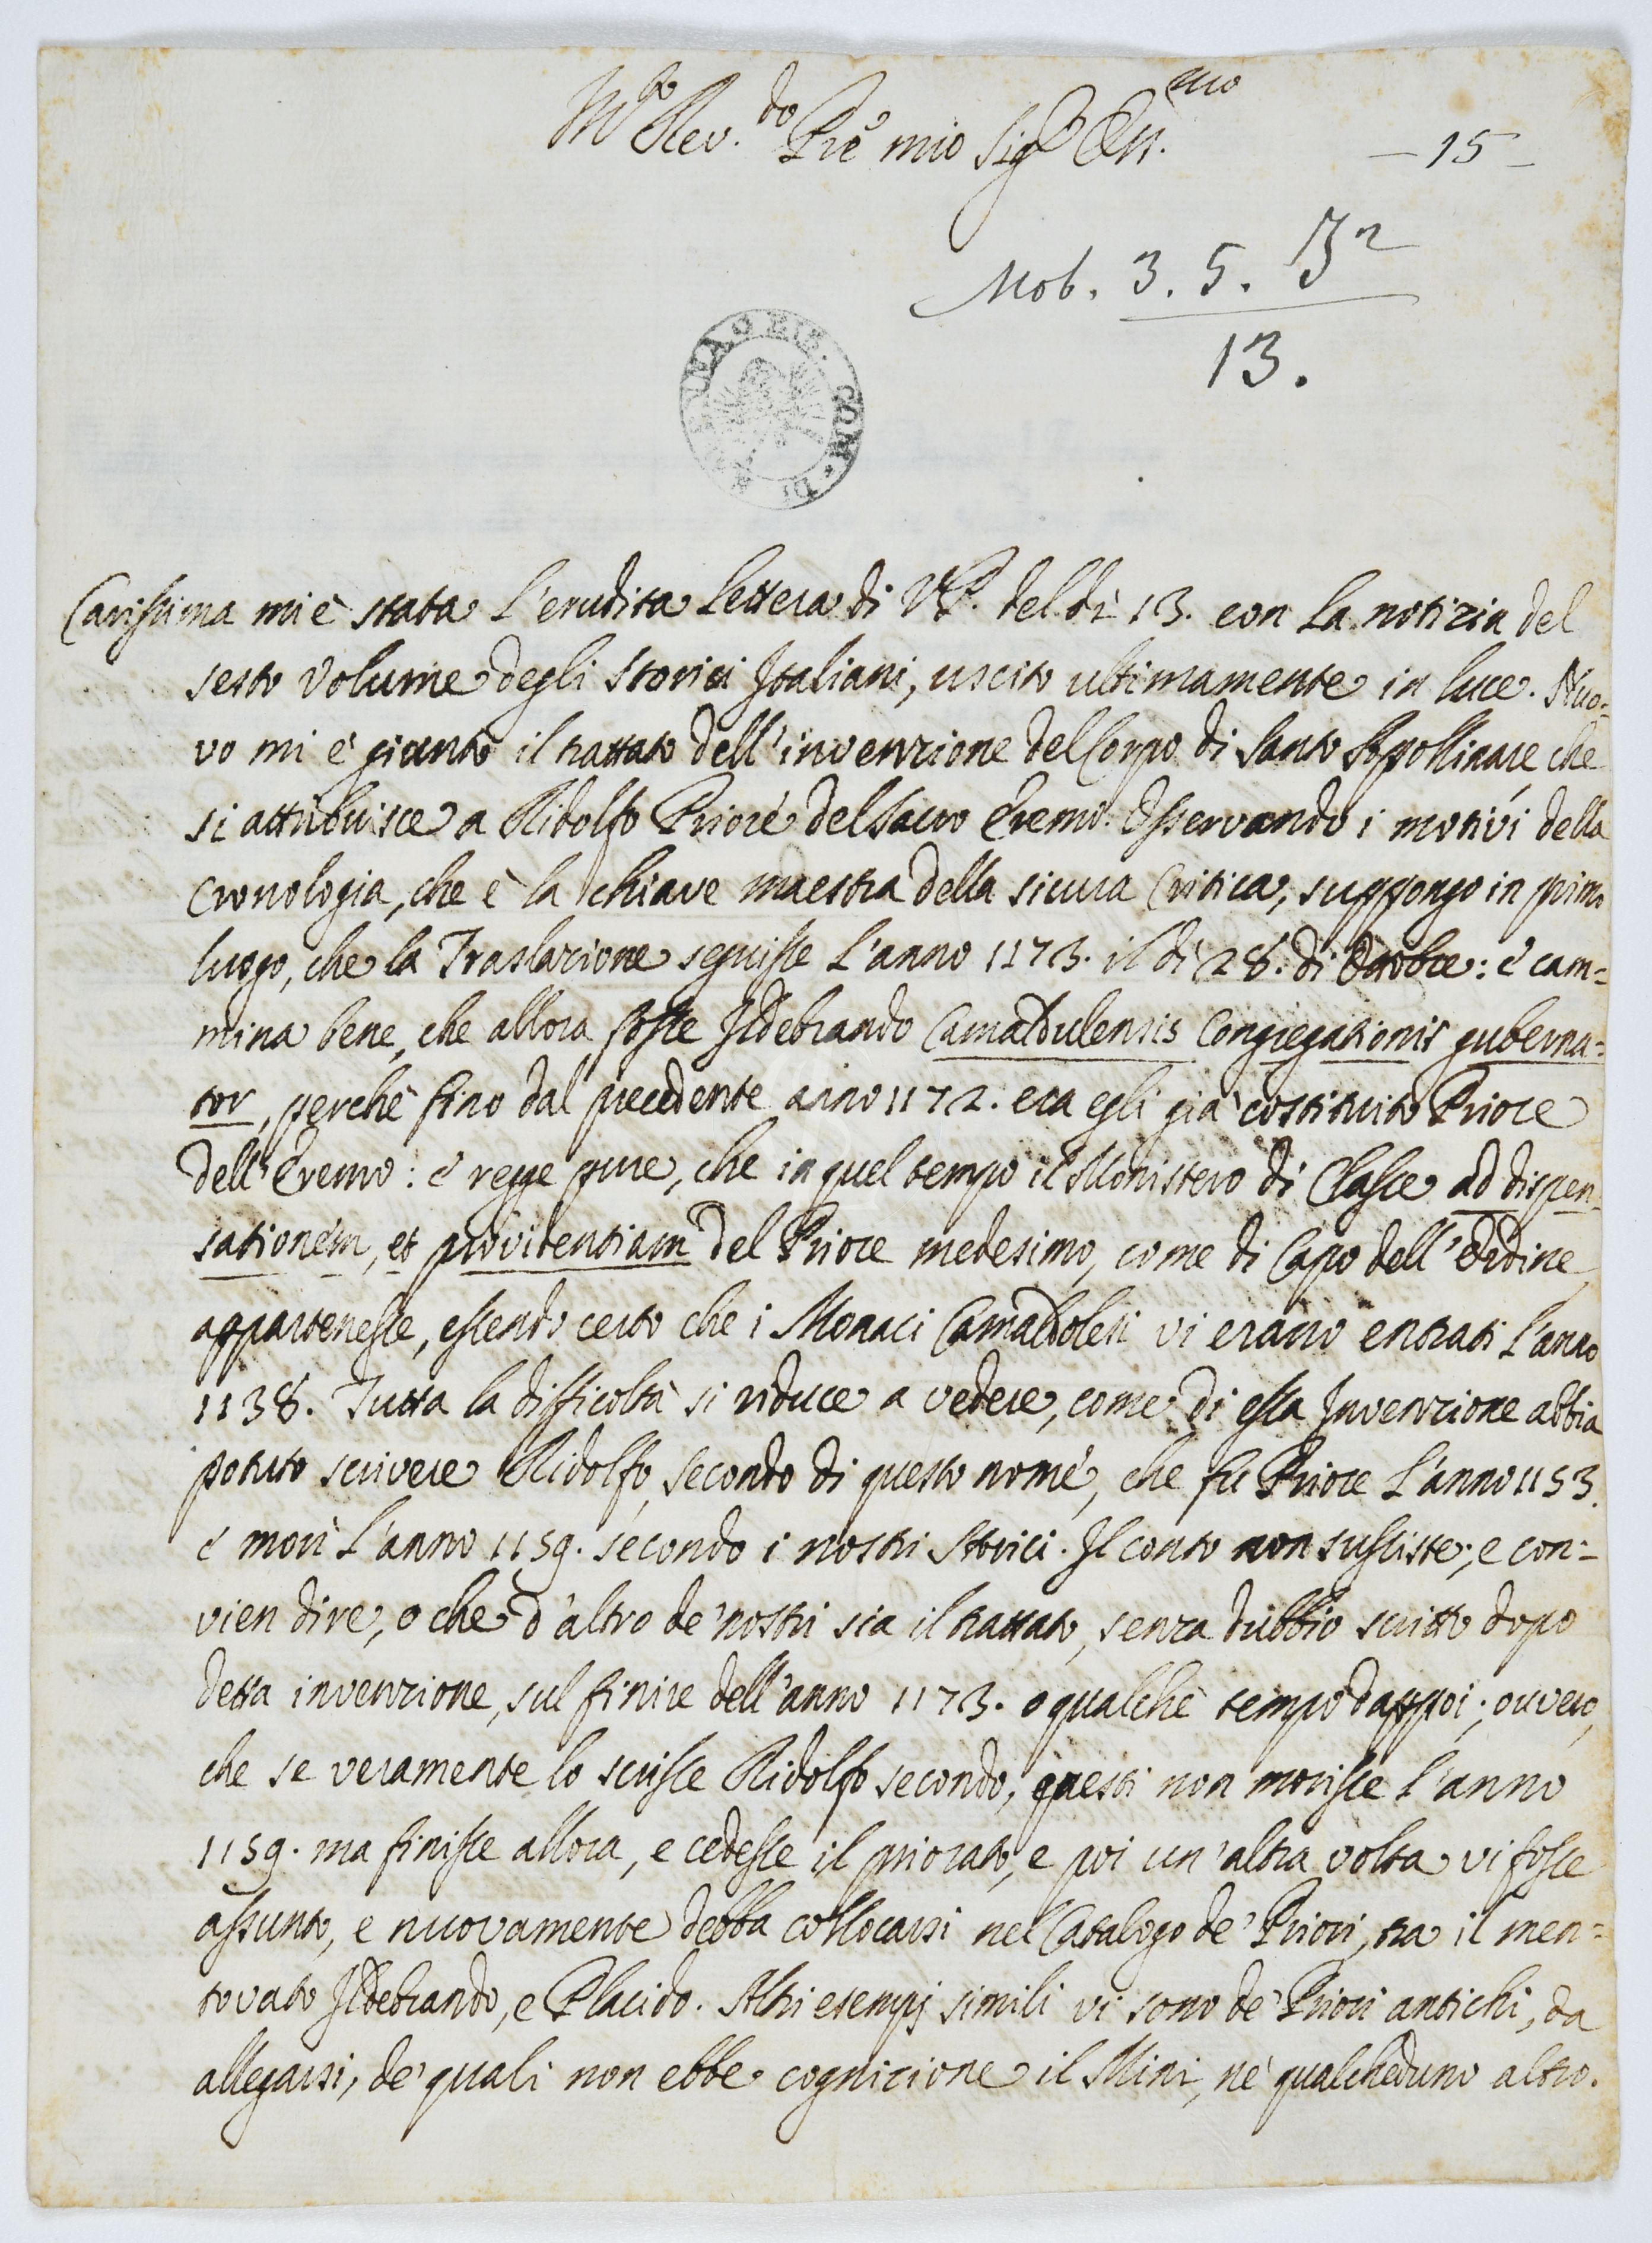 M.to Rev.do Pre mio Sig.r Oss.mo
- 15 -
Mob. 3. 5. J2
13.
BIB. COM. DI
Carissima mi è stata l'erudita lettera di V.P. del dì 13. con la notizia del
sesto volume degli Storici Italiani, uscito ultimamente in luce. Nuo=
vo mi è giunto il trattato dell'invenzione del Corpo di Santo Appollinare che
si attribuisce a Ridolfo Priore del Sacro Eremo. Osservando i motivi della
Cronologia, che è la chiave maestra della sicura Critica, suppongo in primo
luogo, che la Traslazione seguisse l'anno 1173. il dì 28. di Ottobre: e cam=
mina bene, che allora fosse Ildebrando Camaldulensis Congregationis guberna=
tor, perchè fino dal precedente anno 1172. era egli già costituito Priore
dell'Eremo: e regge pure, che in quel tempo il Monistero di Classe ad dispen=
sationem, et providentiam del Priore medesimo, come di Capo dell'Ordine
appartenesse, essendo certo che i Monaci Camaldolesi vi erano entrati l'anno
1138. Tutta la difficoltà si riduce a vedere, come di essa Invenzione abbia
potuto scrivere Ridolfo, secondo di questo nome, che fu Priore l'anno 1153.
e morì l'anno 1159. secondo i nostri Storici. Il conto non sussiste; e con=
vien dire, o che d'altro de' nostri sia il trattato, senza dubbio scritto dopo
detta invenzione, sul finire dell'anno 1173. o qualche tempo dappoi; ouvero,
che se veramente lo scrisse Ridolfo secondo, questi non morisse l'anno
1159. ma finisse allora, e cedesse il priorato, e poi un'altra volta vi fosse
assunto, e nuovamente debba collocarsi nel Catalogo de' Priori, tra il men=
tovato Ildebrando, e Placido. Altri esempj simili vi sono de' Priori antichi, da
allegarsi, de' quali non ebbe cognizione il Mini, nè qualcheduno altro.